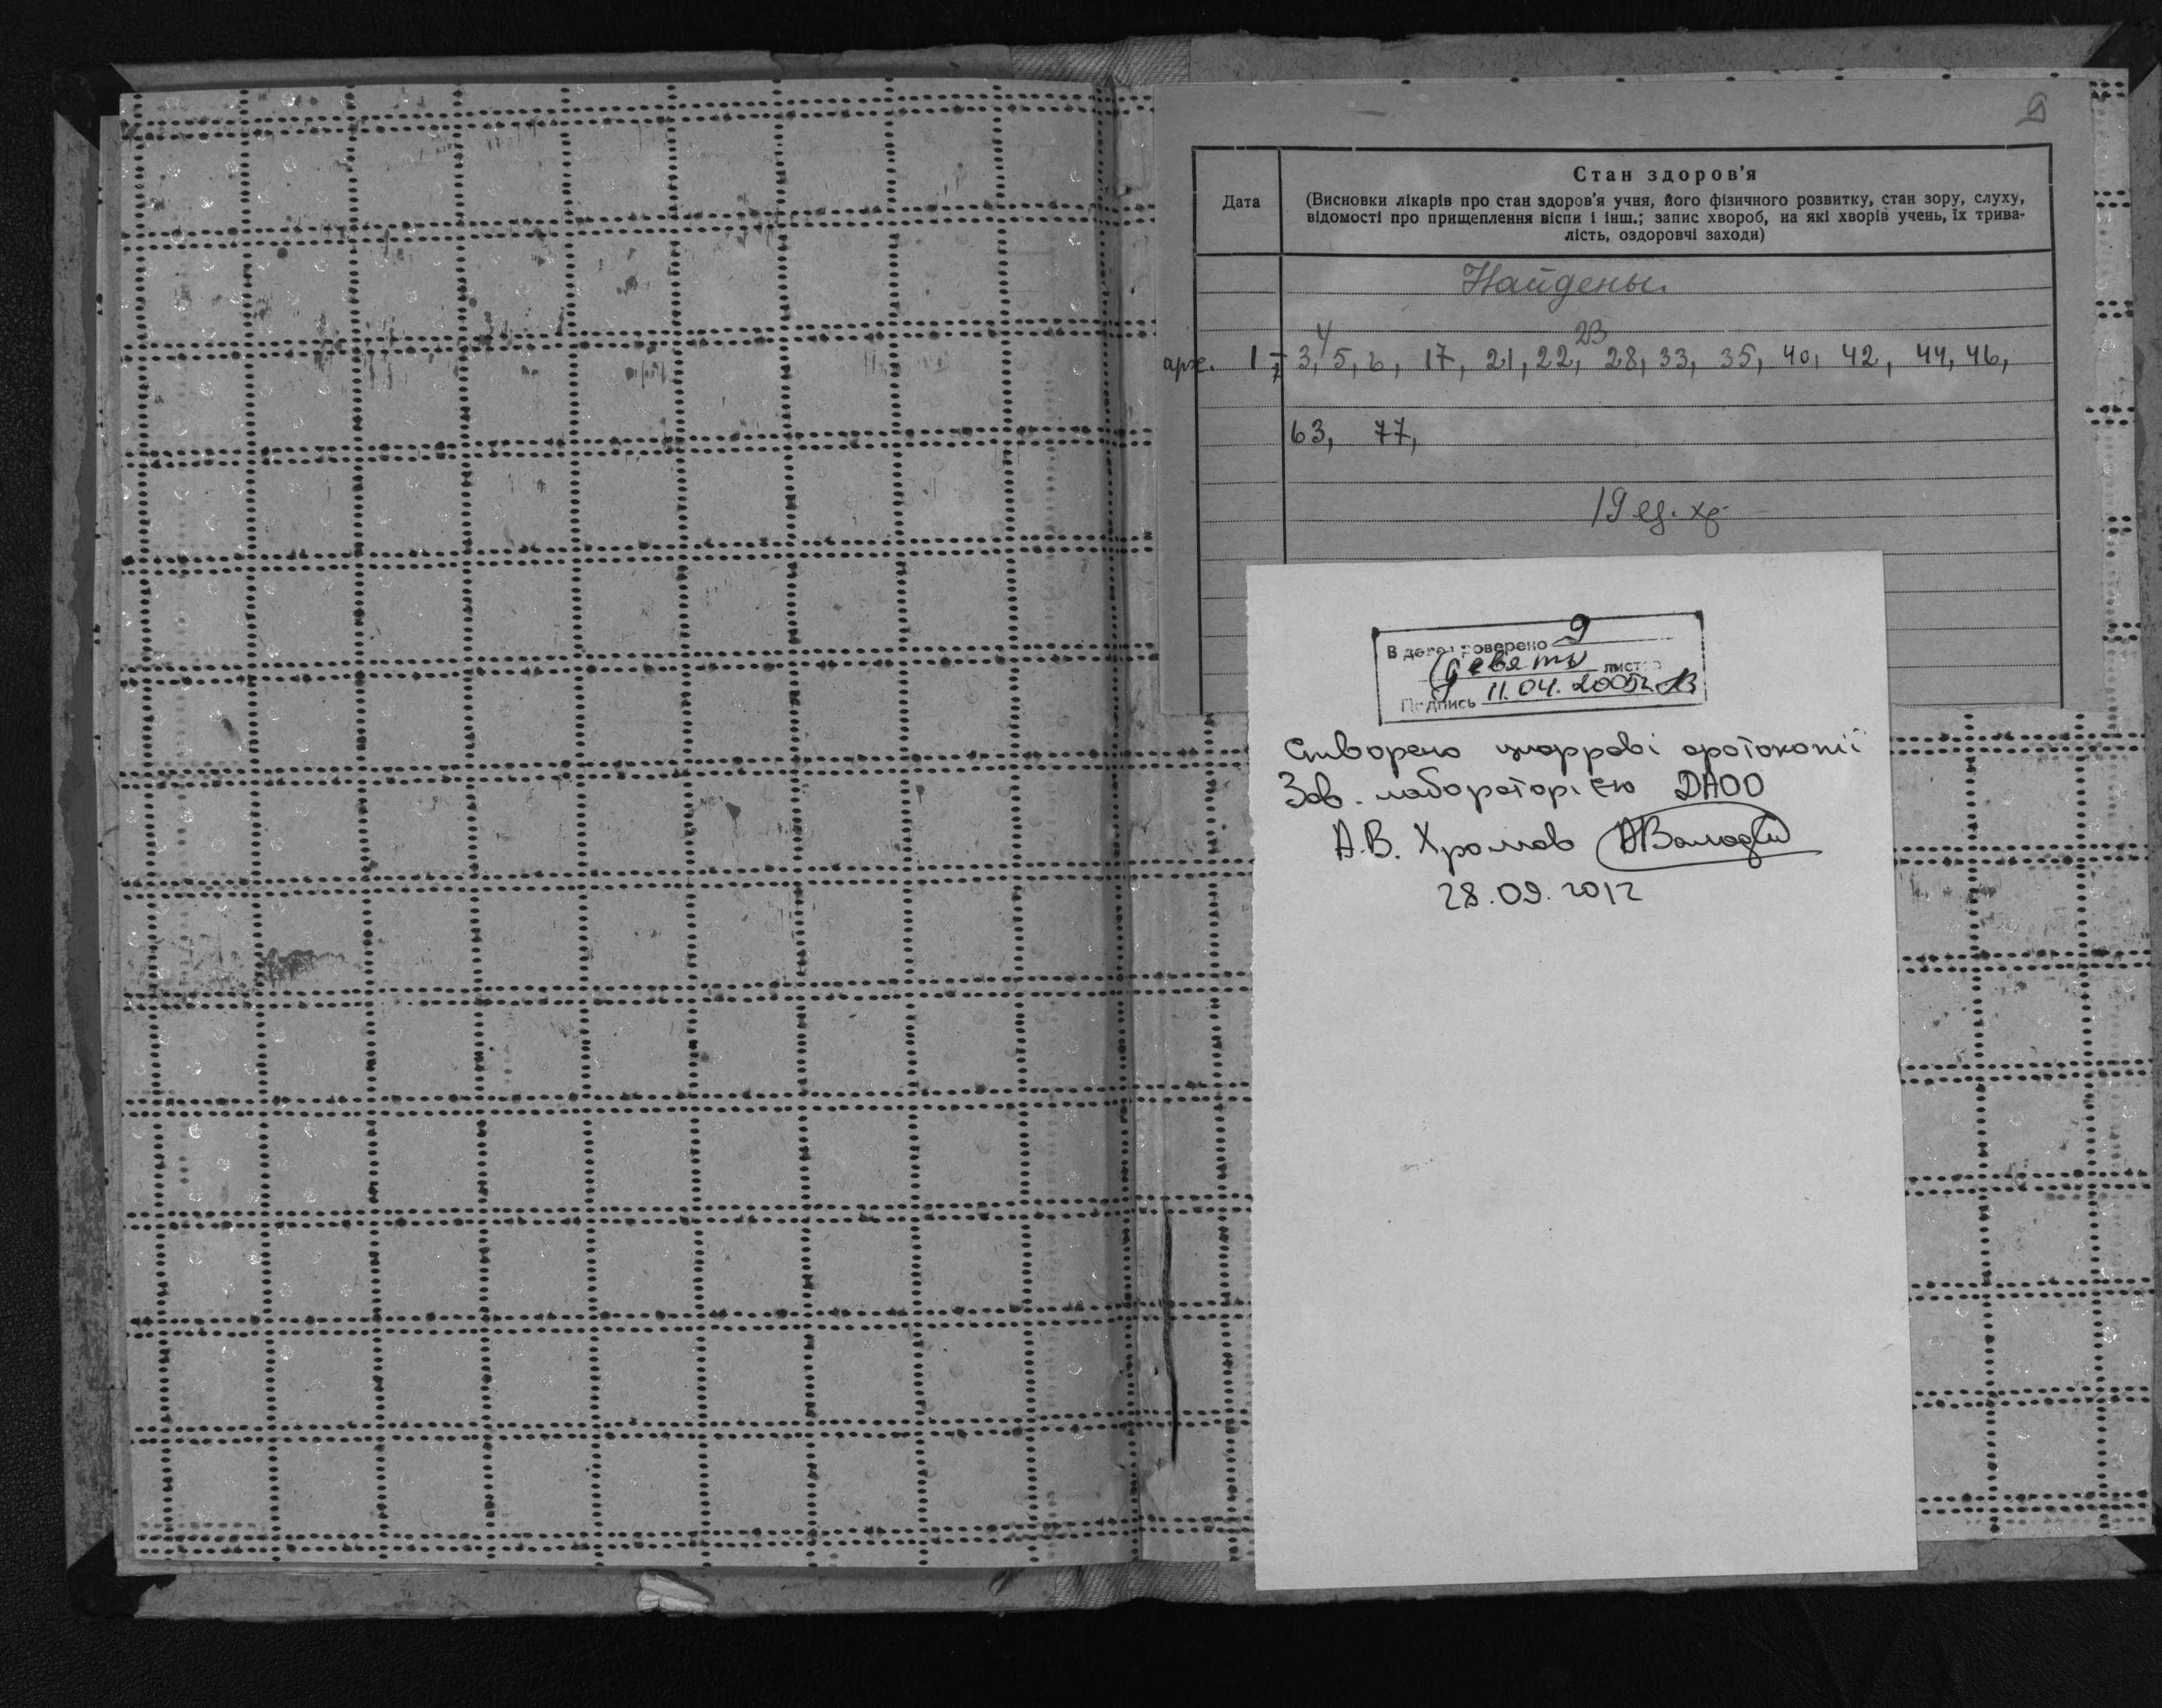 9
Дата
Стан здоров'я
(Висновки лікарів про стан здоров'я учня, його фізичного розвитку, стан зору, слуху,
відомості про прищеплення віспи і інш.; запис хвороб, на які хворів учень, їх трива-
лість, оздоровчі заходи)
Найдены.
4 23
1, 3, 5, 6, 17, 21, 22, 28, 33, 35, 40, 42, 44, 46,
63, 77,
19 ед. хр.
В деле проверено 9
(девять) листов
Подпись 11.04.2005г.
Створено цифрові фотокопії
Зав. лабораторією ДАОО
А.В. Хромов
28.09.2012